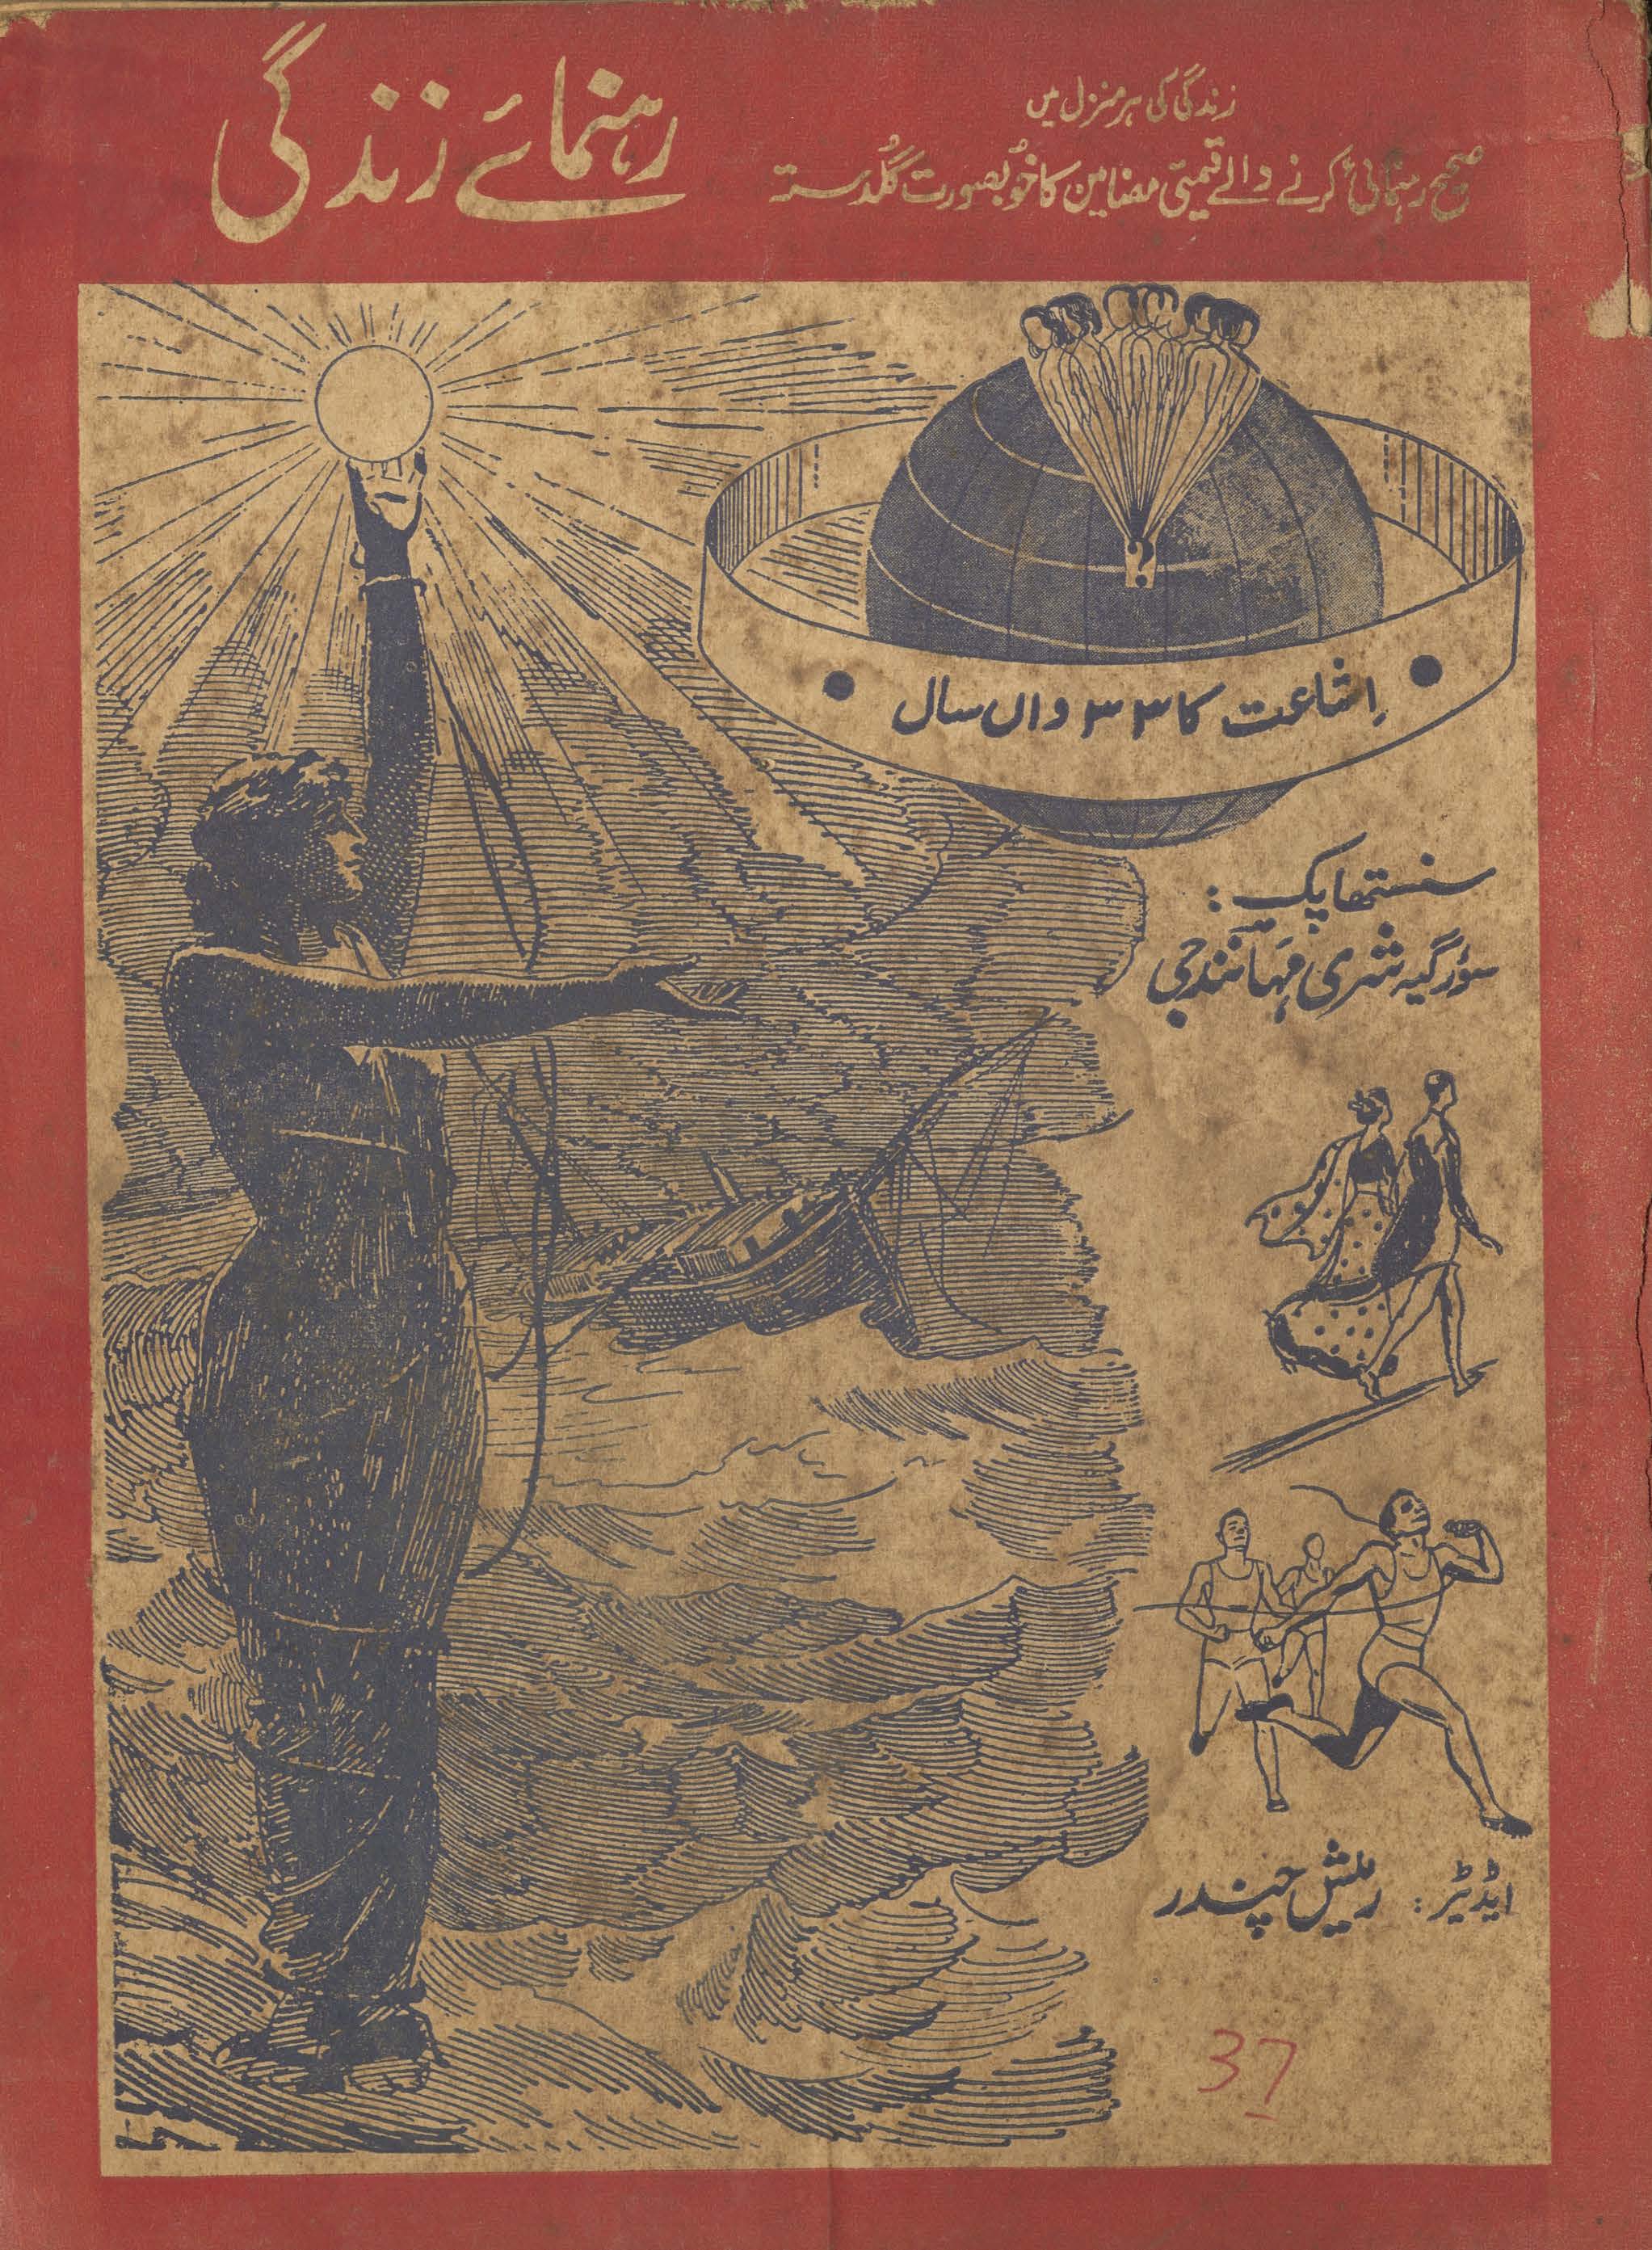 رہنمائے زندگی
زندگی کی ہر منزل میں
صحیح رہنمائی کرنے والے قیمتی مضامین کا خوُبصورت گُلدستہ
?
اِشاعت کا ۳۳ واں سال
سنستھاپک :
سوَرگیہ شری مہانند جی
ایڈیٹر : رمیش چندر
37